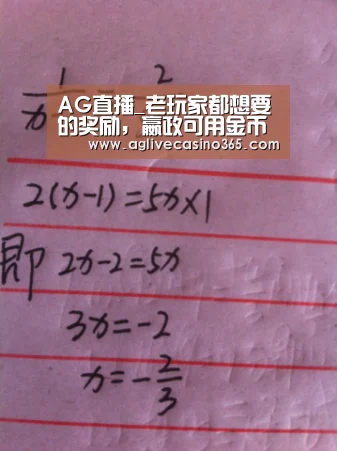 1 2
x
AG直播_老玩家都想要
的奖励，赢政可用金币
www.aglivecasino365.com
2(x-1)=5x×1
即 2x-2=5x
3x=-2
x=-2/3